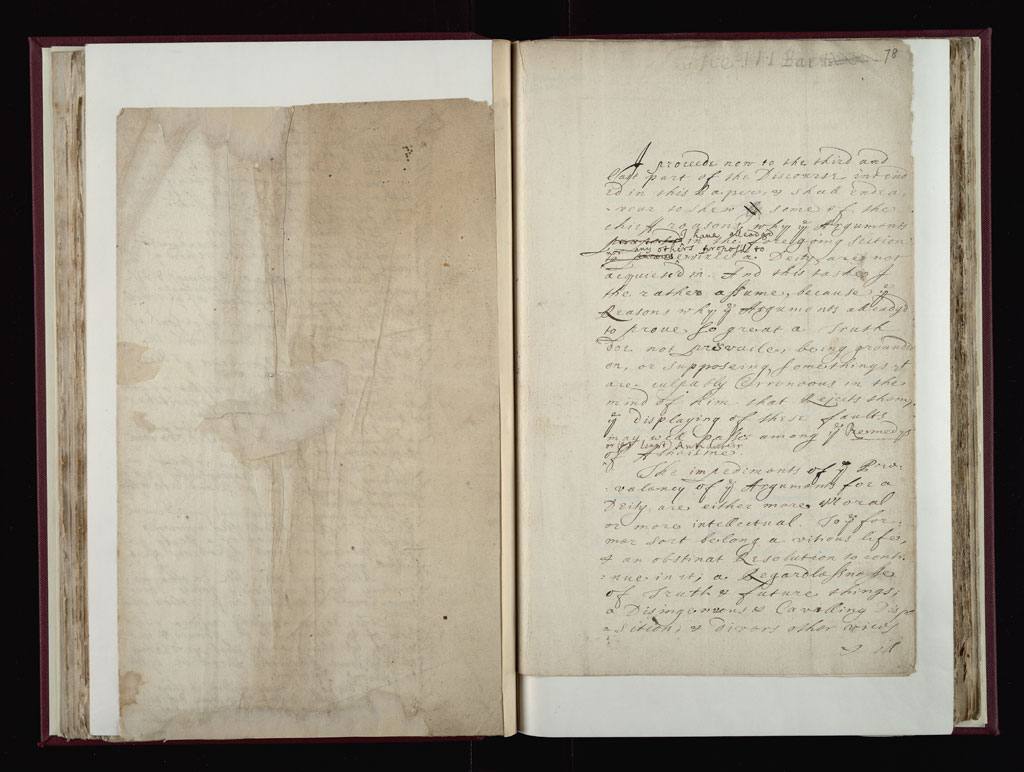 The III Part 78
I proceede now to the third and
last part of the Discourse intend
ed in this Paper, & shall endea
-vour to shew some of the
chief reasons why ye Arguments
I have alleadg'd
in the foregoing Section
nor any others propos'd to
a Deity, are not
acquiesc'd in. And this taske I
the rather assume, because ye
Reasons why ye Arguments alleadg'd
to prove so great a Truth
doe not prevaile, being grounded
on, or supposeing somethings yt
are culpably Erroneous in the
mind of him that Rejects them,
ye displaying of these faults
may well passe among ye Remedys
or at least Antidotes
of Atheisme.
The impediments of ye Pre-
-valency of ye Arguments for a
Deity, are either more Moral
or more intellectual. To ye for-
mer sort belong a vitious life,
& an obstinat Resolution to conti
-nue in it; a Regardlessnesse
of Truth & future things;
a Disingenuous & Cavilling Dispo
-sition; & divers other vices